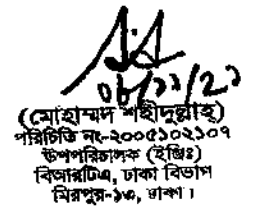 ০৮/১১/২১
(মোহাম্মদ শহীদুল্লাহ্)
পরিচিতি নং-২০০৫১০২১০৭
উপপরিচালক (ইঞ্জিঃ)
বিআরটিএ, ঢাকা বিভাগ
মিরপুর-১৩, ঢাকা।